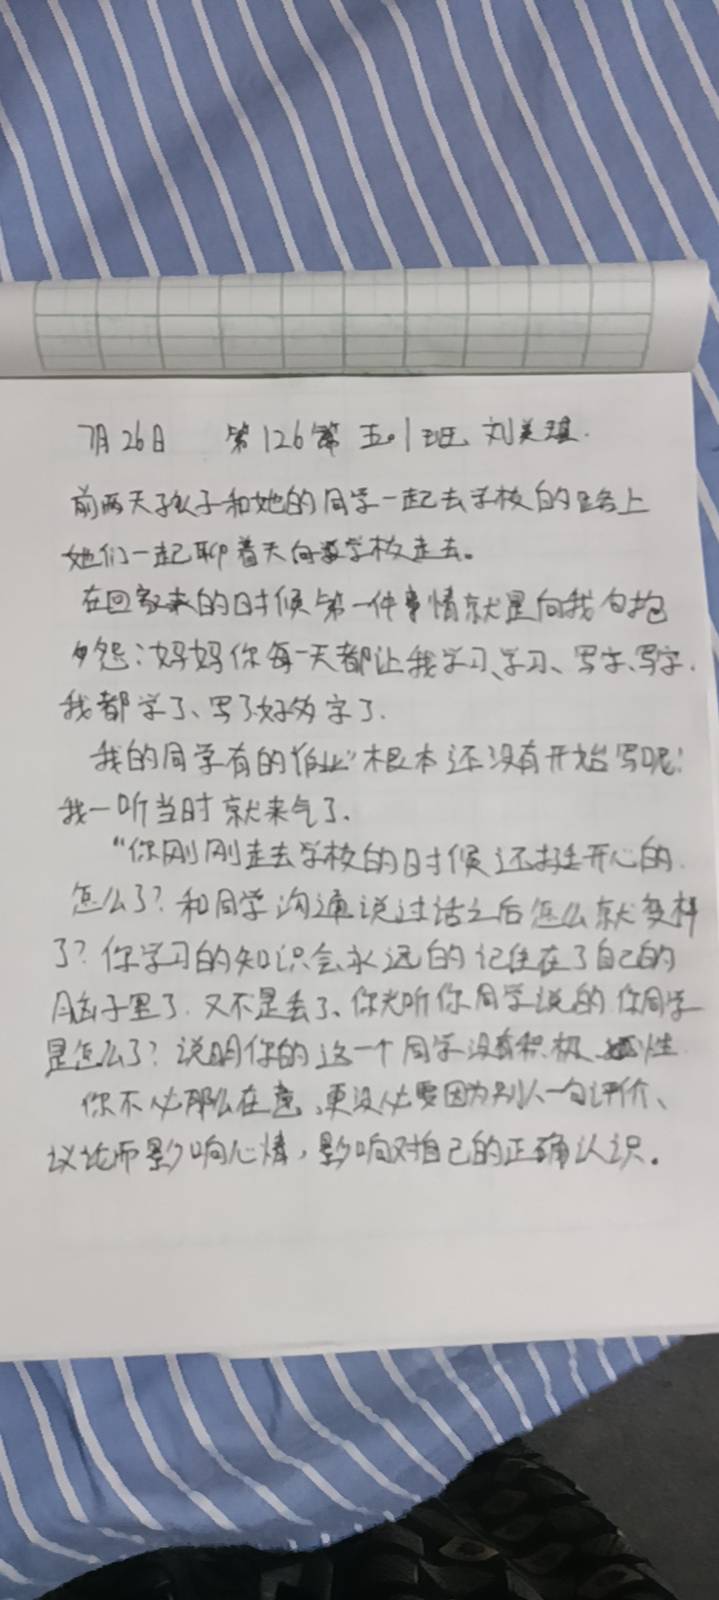 7月26日 第126篇 五.1班 刘美琪.
前两天孩子和她的同学一起去学校的路上
她们一起聊着天向学校走去。
在回家来的时候第一件事情就是向我包抱
怨:妈妈你每一天都让我学习、学习、写字、写字.
我都学了、写了好多字了.
我的同学有的“作业”根本还没有开始写呢!
我一听当时就来气了.
“你刚刚走去学校的时候还挺开心的.
怎么了?和同学沟通说过话之后怎么就变样
了?你学习的知识会永远的记住在了自己的
脑子里了.又不是丢了、你光听你同学说的你同学
是怎么了?说明你的这一个同学没有积极 性
你不必那么在意、更没必要因为别人一句评价、
议论而影响心情,影响对自己的正确认识。